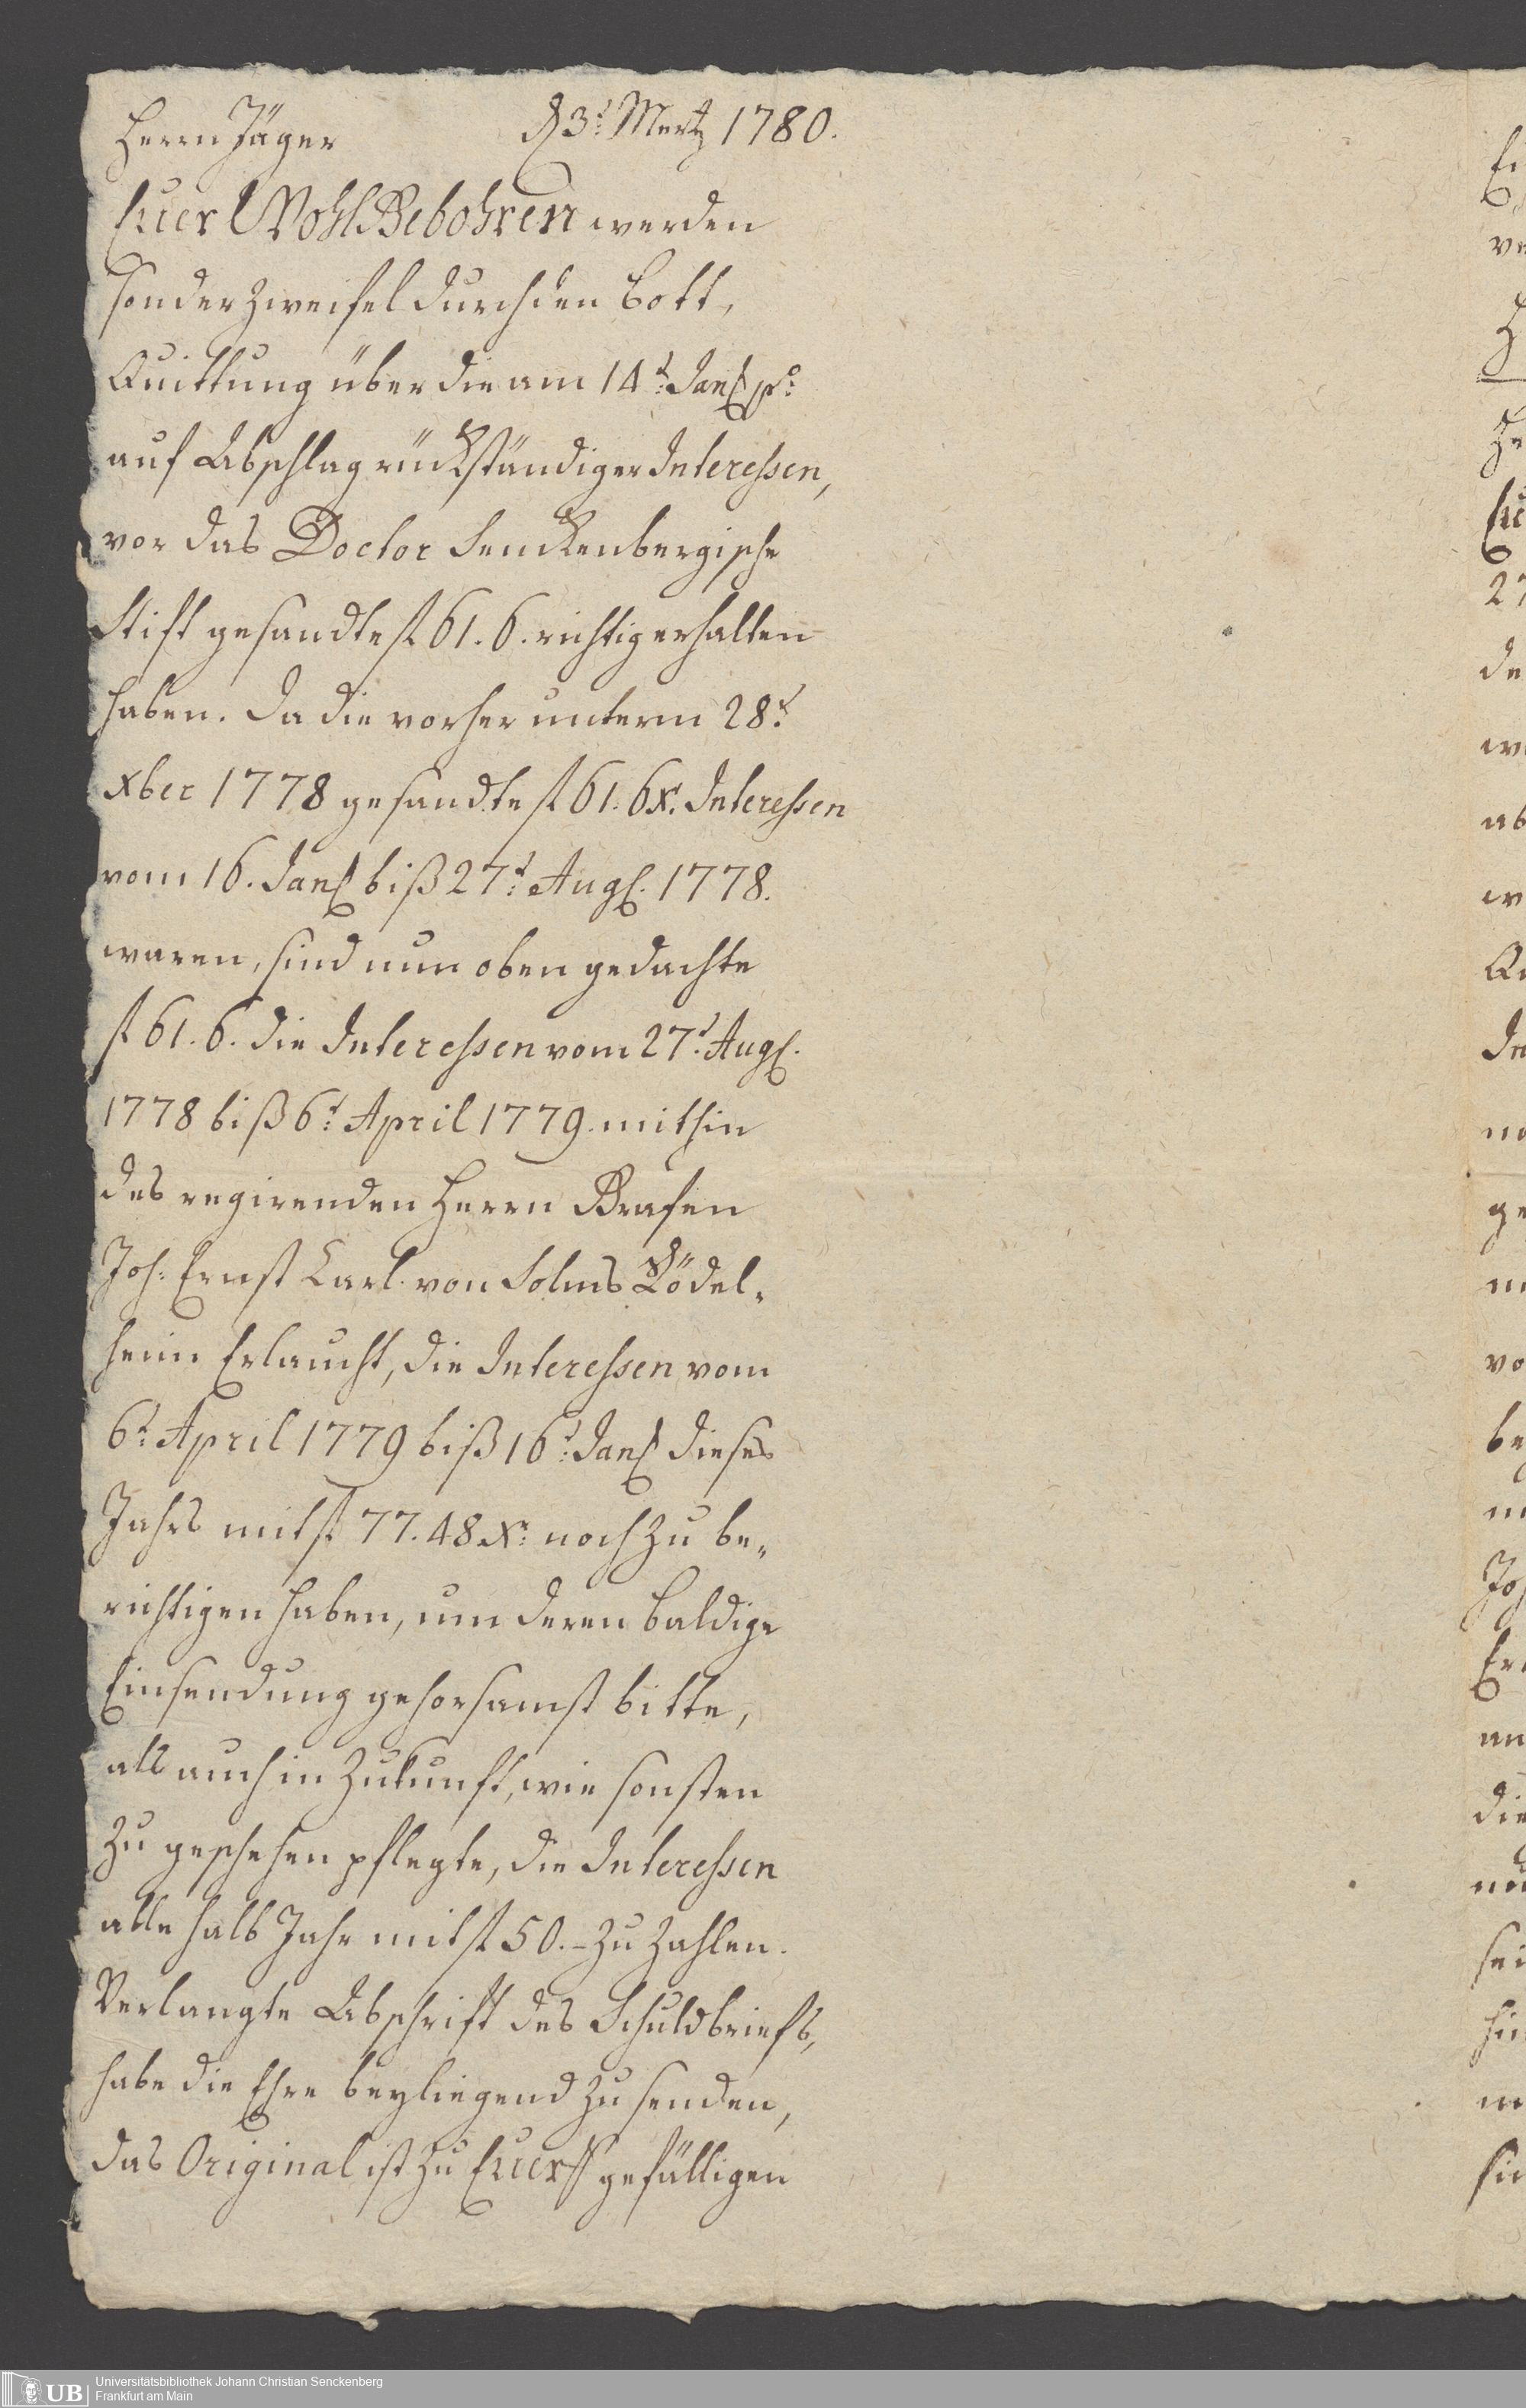 Herrn Jäger
d 3t. Mertz 1780.
Euer WohlGebohren werden
sonder Zweifel durch den Bott,
Quittung über die am 14t. Jan. po.
auf Abschlag rückständiger Interessen,
vor das Doctor Senckenbergische
Stift gesandte f 61.6. richtig erhalten
haben. Da die vorher unterm 28t.
xber 1778 gesandte f 61.6x. Interessen
vom 16. Jan. biß 27t. Aug. 1778.
waren, sind nun oben gedachte
f 61.6. die Interessen vom 27t. Aug.
1778 biß 6t. April 1779. mithin
des regirenden Herrn Grafen
Joh: Ernst Carl von Solms Rödel„
heim Erlaucht, die Interessen vom
6t. April 1779 biß 16t. Jan. dieses
Jahrs mit f 77.48x: noch zu be„
richtigen haben, um deren baldige
Einsendung gehorsamst bitte,
als auch in Zukunft, wie sonsten
zu geschehen pflegte, die Interessen
alle halb Jahr mit f 50.- zu zahlen.
Verlangte Abschrift des Schuldbriefs,
habe die Ehre beyliegend zu senden,
das Original ist zu Euer gefälligen
UB
Universitätsbibliothek Johann Christian Senckenberg
Frankfurt am Main